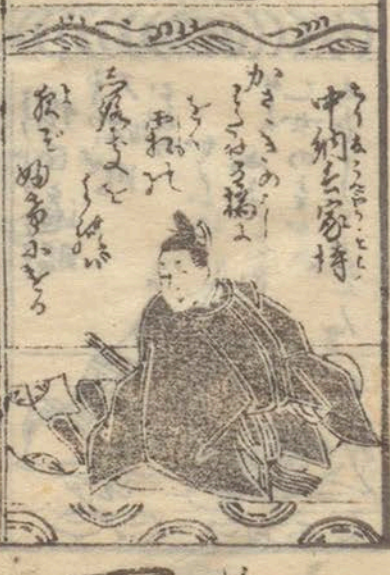 中納言家持
かさゝぎの
わたせる橋に
をく
霜の
しろきを
みれば
夜ぞふけにける